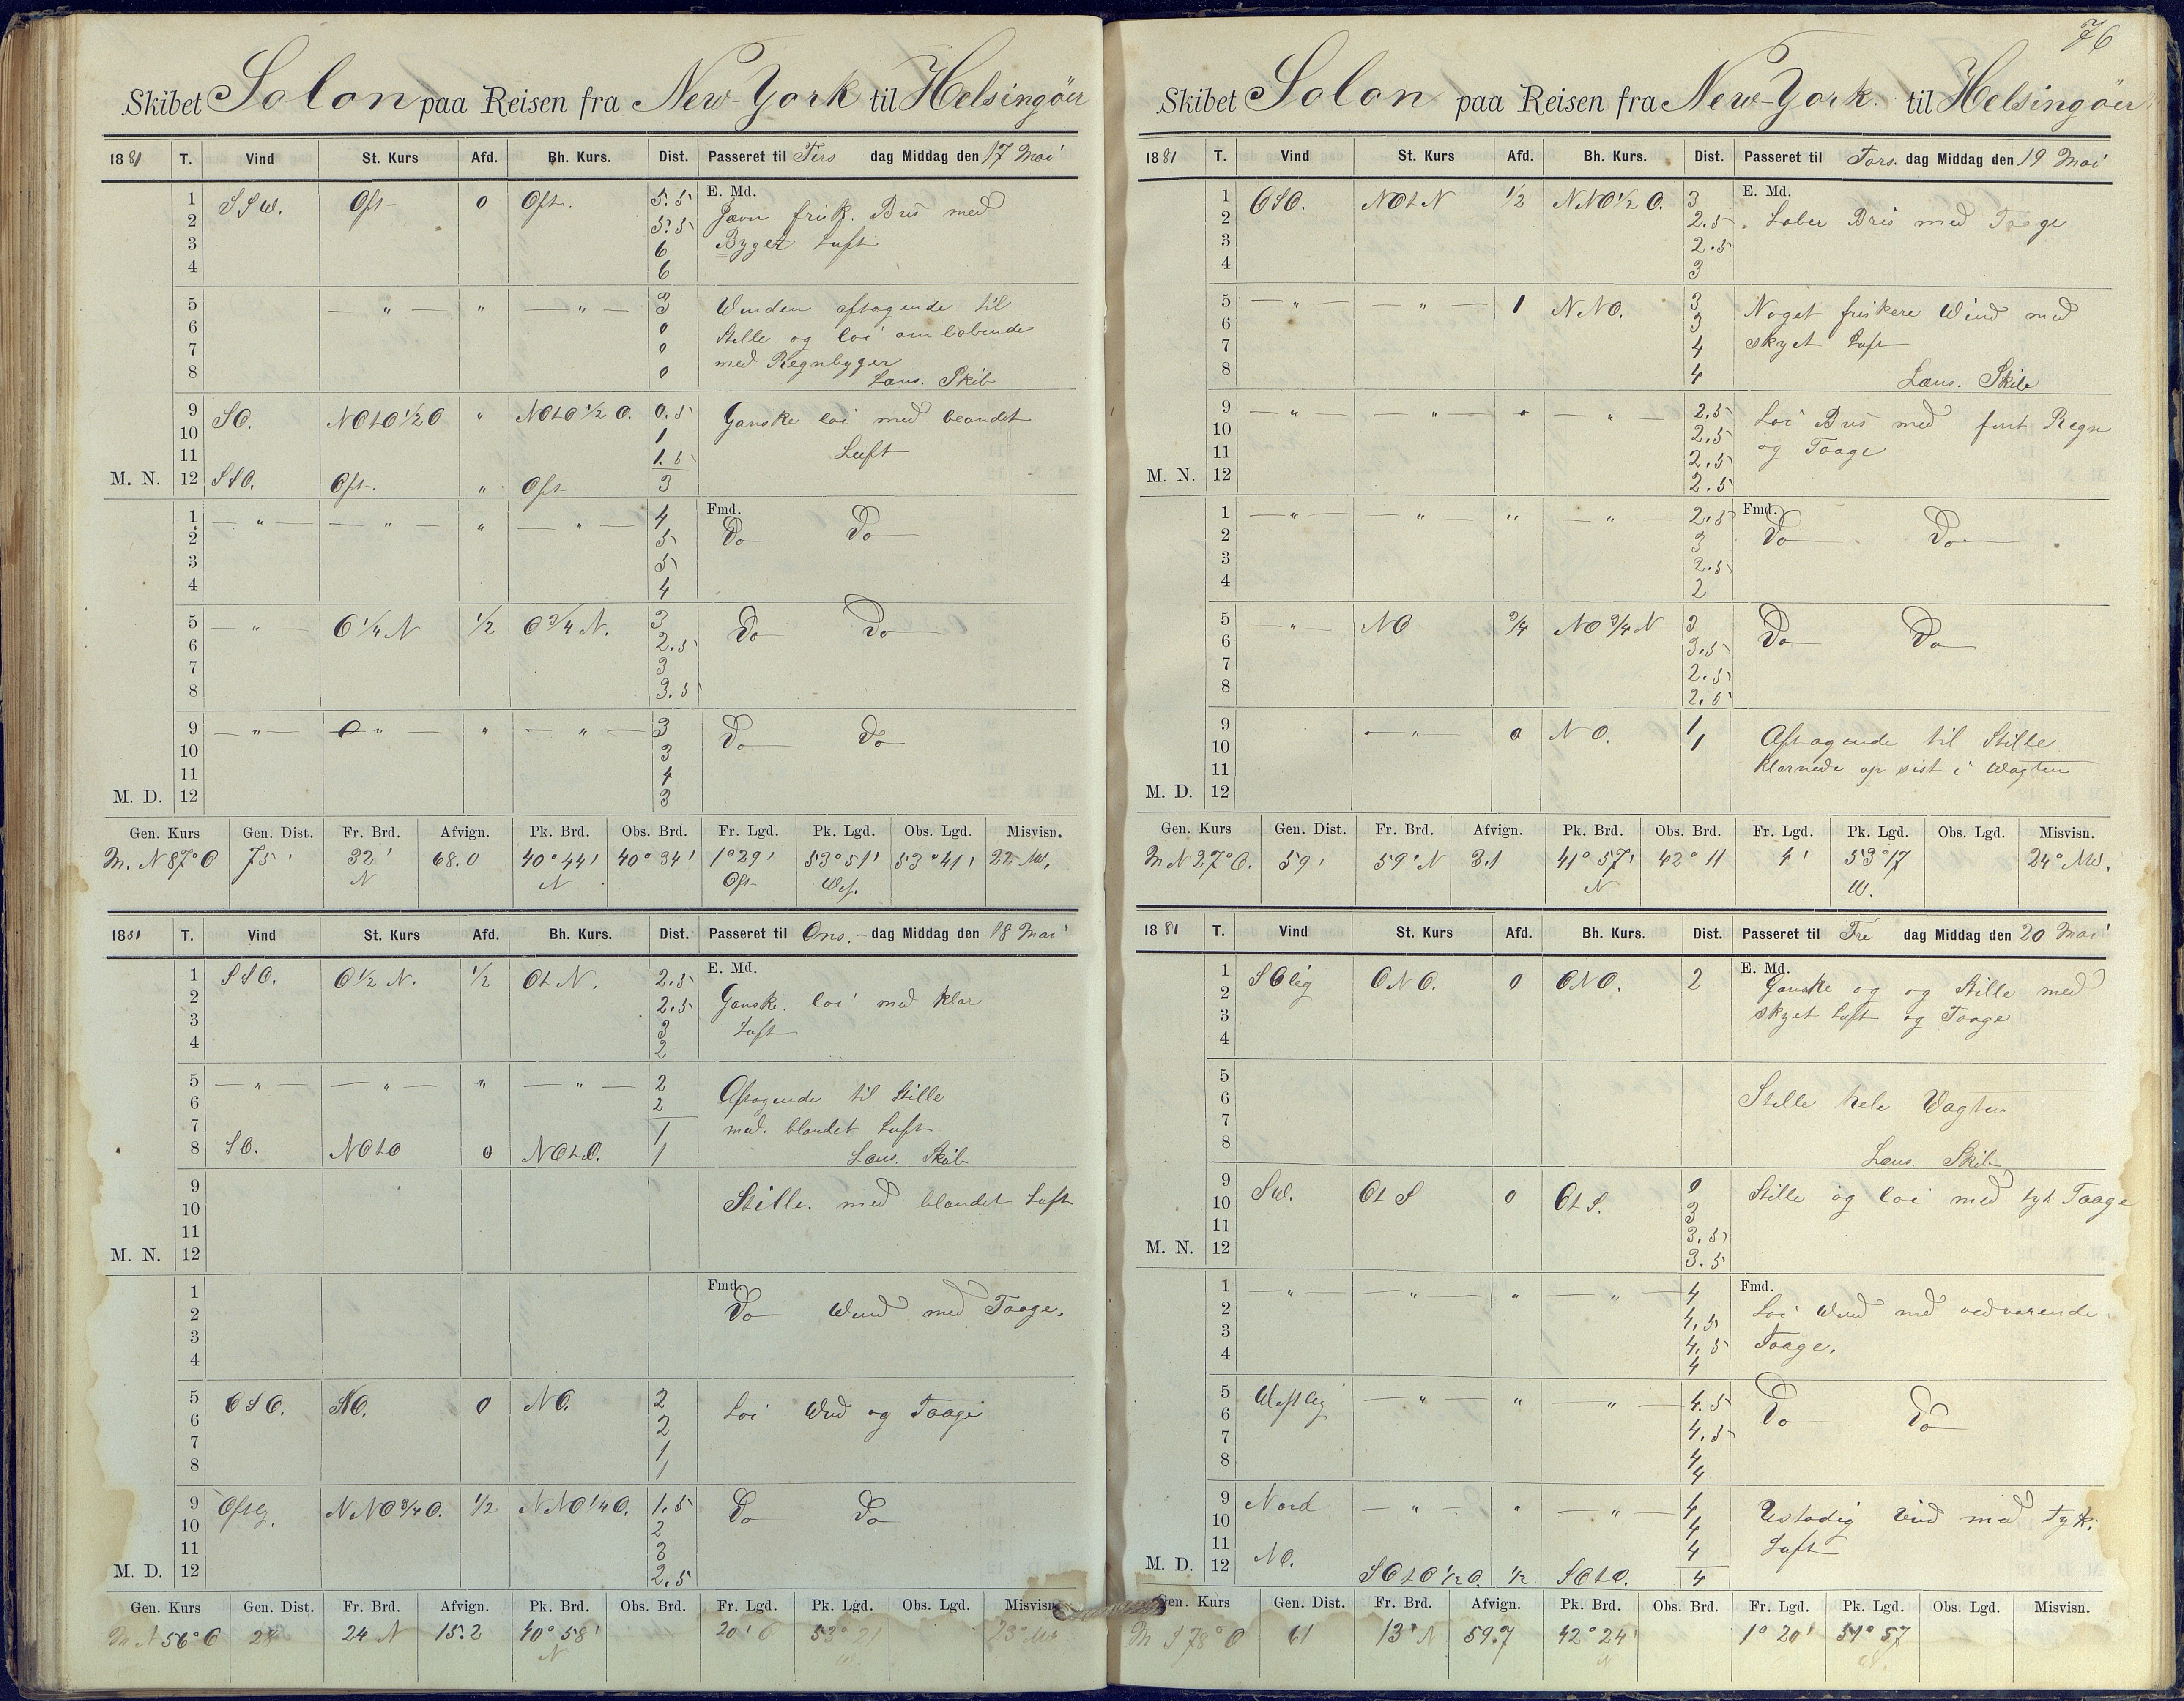 Skibet Solon paa Reisen fra New-York til Helsingöer
1881 T. Vind St. Kurs Afd. Bh. Kurs. Dist. Passeret til Tirs dag Middag den 17 Mai
1 SSW. Ost 0 Ost. 5.5 E. Md.
2 5.5 Jævn frisk. Bris med
3 6 Byget Luft
4 6
5 — " — — " — " — " — 3 Winden aftagende til
6 0 Stille og loi omløbende
7 0 med Regnbyger
8 0 Læns. Skib
9 SO. NOtO 1/2 O " NOtO 1/2 O. 0.5 Ganske loi med blandet
10 1 Luft
11 1.5
M. N. 12 SSO. Ost. " Ost 3
1 — " — — " — " — " — 4 Fmd.
2 5 Do Do
3 5
4 4
5 — " — O 1/4 N 1/2 O 3/4 N. 3 Do Do
6 2.5
7 3
8 3.5
9 — " — — " — " — " — 3 Do Do
10 3
11 4
M. D. 12 3
Gen. Kurs Gen. Dist. Fr. Brd. Afvign. Pk. Brd. Obs. Brd. Fr. Lgd. Pk. Lgd. Obs. Lgd. Misvisn.
M. N 87° O 75' 32' 68.0 40° 44' 40° 34' 1° 29' 53° 51' 53° 41' 22 NW.
N N Ost W.
1881 T. Vind St. Kurs Afd. Bh. Kurs. Dist. Passeret til Ons. - dag Middag den 18 Mai
1 SSO. O 1/2 N. 1/2 OtN. 2.5 E. Md.
2 2.5 Ganske loi med klar
3 3 Luft
4 2
5 — " — — " — " — " — 2 Aftagende til Stille
6 2 med. blandet Luft
7 1
8 SO. NOtO 0 NOtO. 1 Læns. Skib
9 Stille. med blandet Luft
10
11
M. N. 12
1 Fmd.
2 Do Wind med Taage.
3
4
5 OSO. NO. 0 NO. 2 Loi Wind og Taage
6 2
7 1
8 1
9 Ostlig. NNO 3/4 O. 1/2 NNO 1/4 O. 1.5 Do Do
10 2
11 3
M. D. 12 2.5
Gen. Kurs Gen. Dist. Fr. Brd. Afvign. Pk. Brd. Obs. Brd. Fr. Lgd. Pk. Lgd. Obs. Lgd. Misvisn.
M N 56° O 28 24 N 15.2 40° 58' 20' O 53° 21 23° NW
N W.
76
Skibet Solon paa Reisen fra New-York. til Helsingöer
1881 T. Vind St. Kurs Afd. Bh. Kurs. Dist. Passeret til Tors. dag Middag den 19 Mai
1 OSO. NOtN 1/2 NNO 1/2 O. 3 E. Md.
2 2.5 Laber Bris med Taage
3 2.5
4 3
5 — " — — " — 1 NNO. 3 Noget friskere Wind med
6 3 skyet Luft
7 4
8 4 Læns. Skib
9 — " — — " — " — " — 2.5 Loi Bris med fint Regn
10 2.5 og Taage
11 2.5
M. N. 12 2.5
1 — " — — " — " — " — 2.5 Fmd.
2 3 Do Do
3 2.5
4 2
5 — " — NO 3/4 NO 3/4 N 3 Do Do
6 3.5
7 2.5
8 2.5
9 — " — 0 NO. 1 Aftagende til Stille
10 1 klarnede op sist i Wagten
11
M. D. 12
Gen. Kurs Gen. Dist. Fr. Brd. Afvign. Pk. Brd. Obs. Brd. Fr. Lgd. Pk. Lgd. Obs. Lgd. Misvisn.
M N 27° O. 59' 59' N 3.1 41° 57' 42° 11 4' 53° 17 24° NW.
N W.
1881 T. Vind St. Kurs Afd. Bh. Kurs. Dist. Passeret til Fre dag Middag den 20 Mai
1 SOlig ONO. 0 ONO. 2 E. Md.
2 Ganske og og Stille med
3 skyet Luft og Taage
4
5
6 Stille hele Vagten
7
8 Læns. Skib
9 SW. OtS 0 OtS. 0 Stille og loi med tyk Taage
10 3
11 3.5
M. N. 12 3.5
1 — " — — " — " — " — 4 Fmd.
2 4.5 Loi Wind med vedvarende
3 4.5 Taage.
4 4
5 Westlig — " — " — " — 4.5 Do Do
6 4.5
7 4
8 4
9 Nord — " — " — " — 4 Ustadig Vind med Tyk.
10 4 Luft
11 NO. 4
M. D. 12 SOtO 1/2 O. 1/2 SOtO. 4
Gen. Kurs Gen. Dist. Fr. Brd. Afvign. Pk. Brd. Obs. Brd. Fr. Lgd. Pk. Lgd. Obs. Lgd. Misvisn.
M S 78° O 61 13' N 59.7 42° 24' 1° 20' 51° 57
N W.